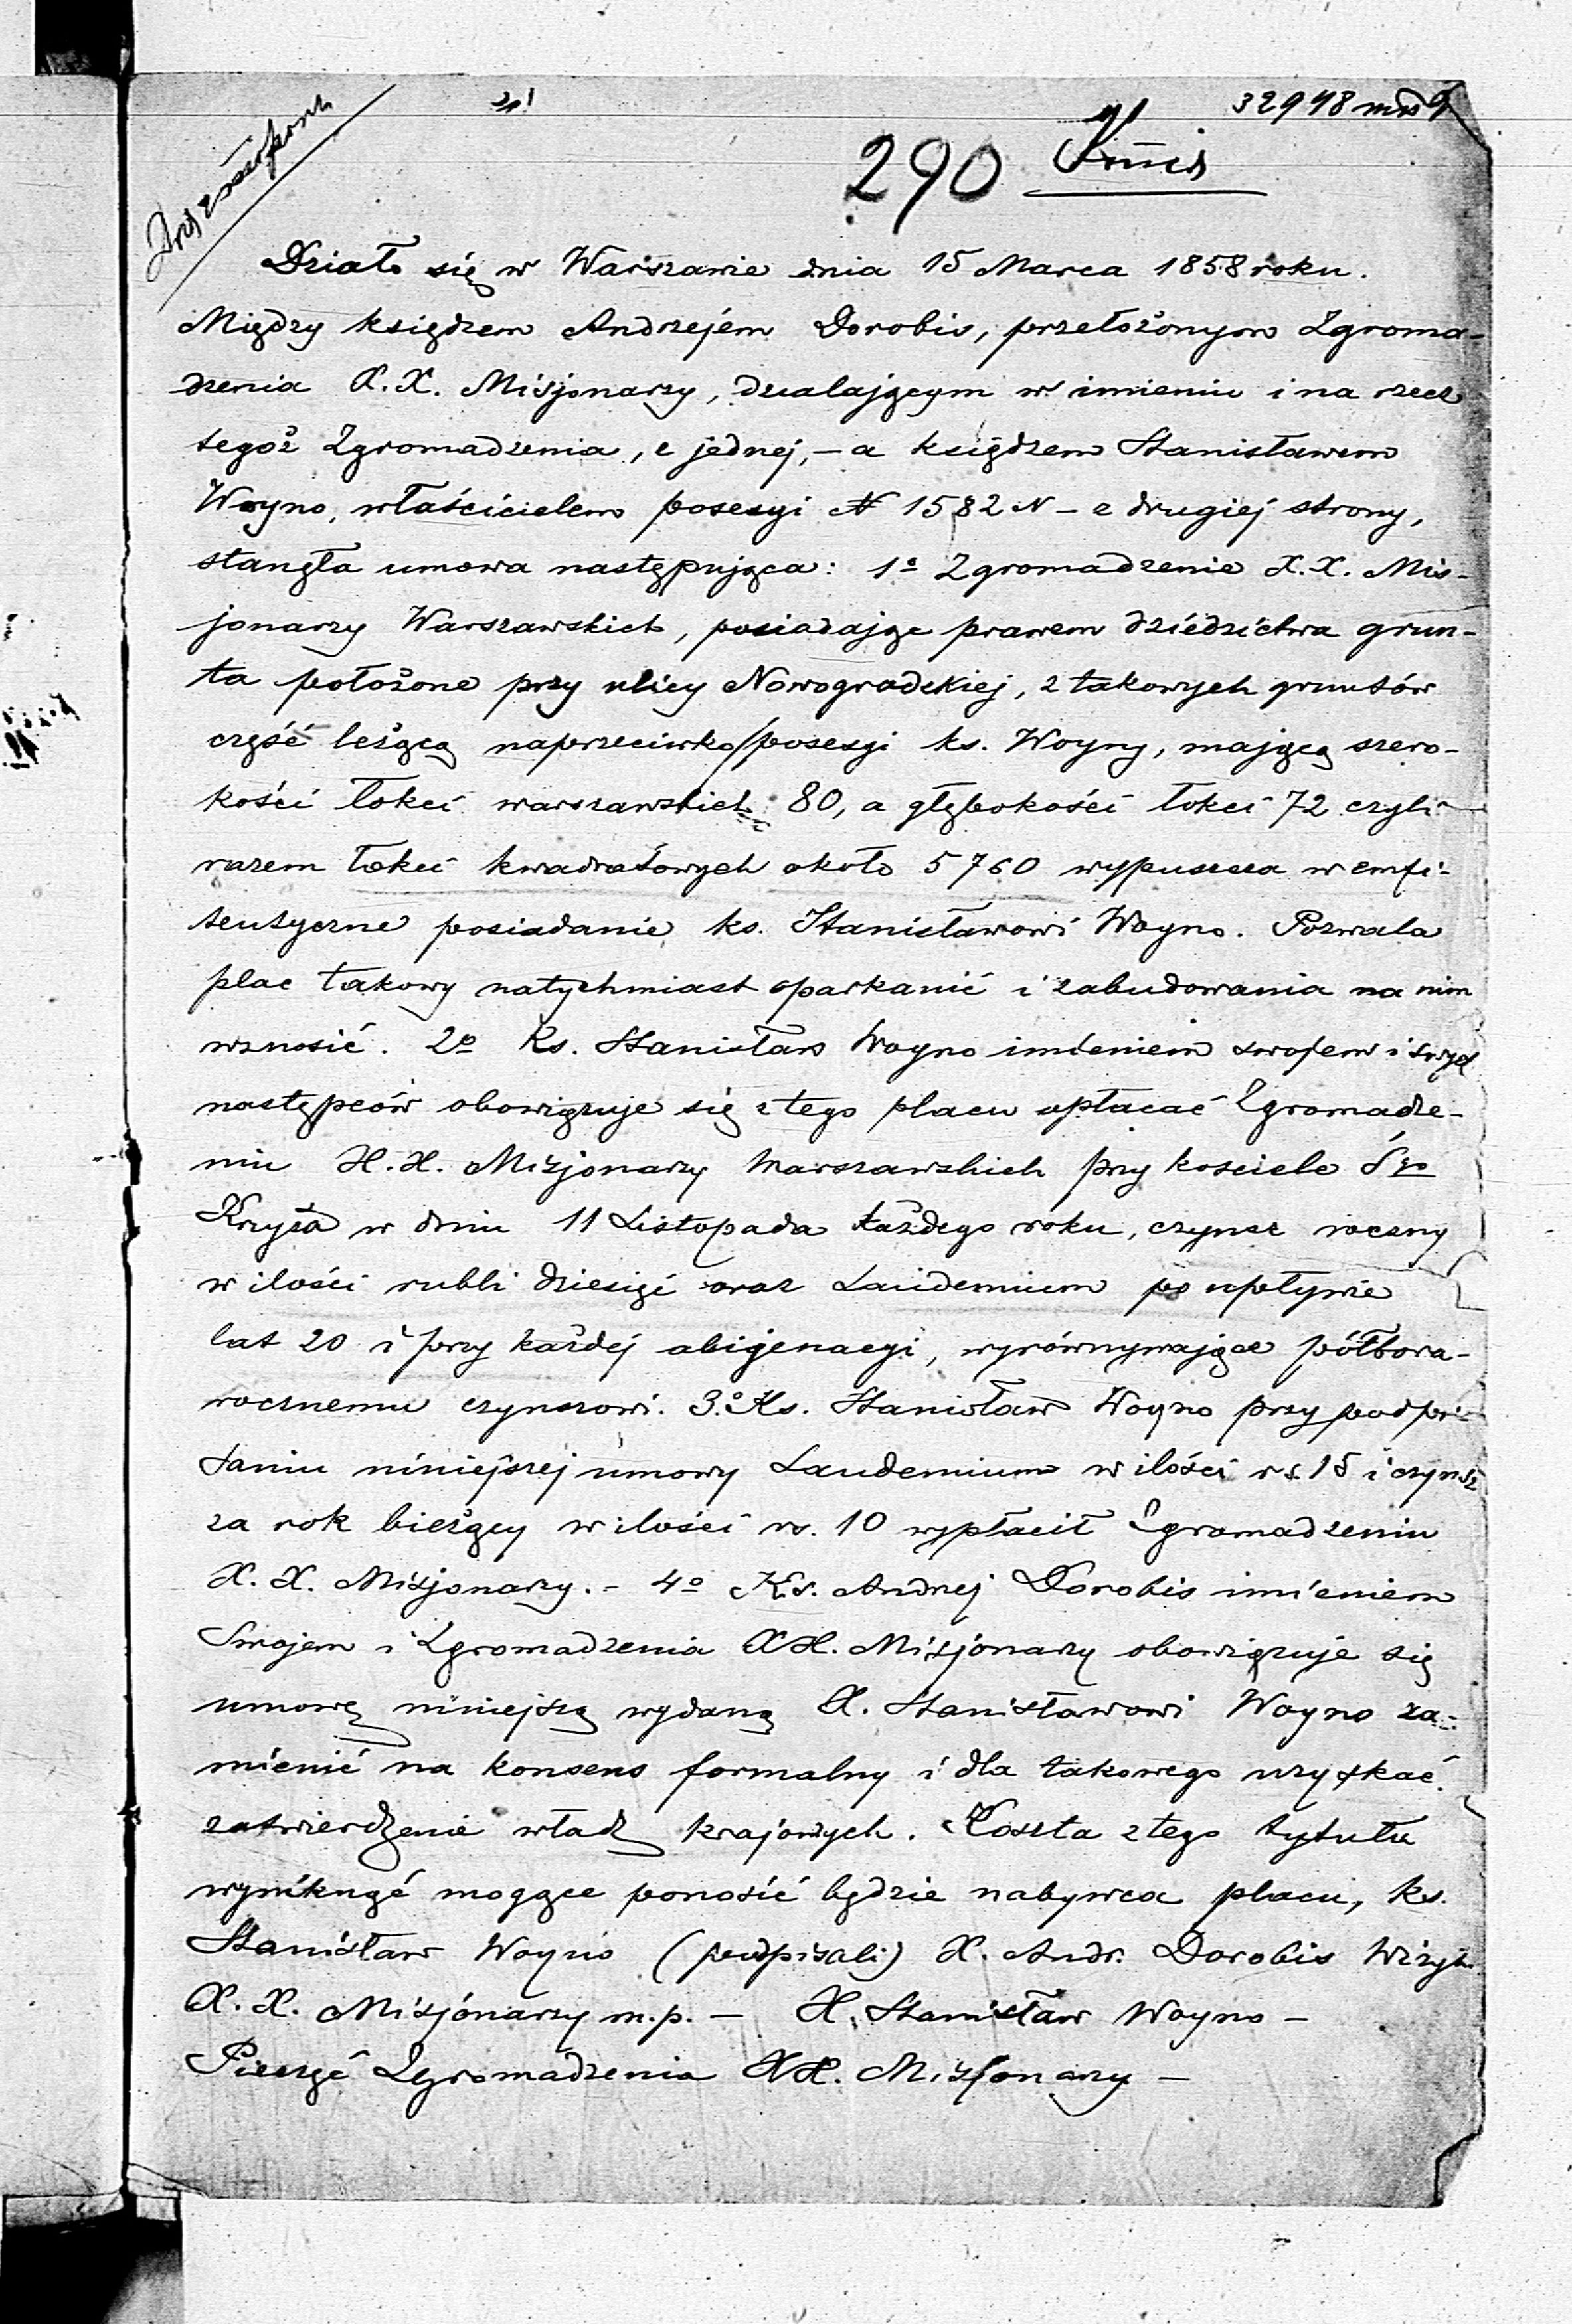 290
Działo się w Warszawie dnia 15 Marca 1858 roku.
Między księdzem Andrzejem Dorobis, przełożonym Zgroma-
dzenia X. X. Misjonarzy, działającym w imieniu i na rzecz
tegoż Zgromadzenia, z jednej, – a księdzem Stanisławem
Woyno, właścicielem posesyi N 1582 N – z drugiej strony,
stanęła umowa następująca: 1º Zgromadzenie X. X. Mis-
jonarzy Warszawskich, posiadając prawem dziedzictwa grun-
ta położone przy ulicy Nowogrodzkiej, z takowych gruntów
część leżącą naprzeciwko posesyi ks. Woyny, mającą szero-
kości łokci warszawskich 80, a głębokości łokci 72 czyli
razem łokci kwadratowych około 5760 wypuszcza w emfi-
teutyczne posiadanie ks. Stanisławowi Woyno. Pozwala
plac takowy natychmiast oparkanić i zabudowania na nim
wznosić. 2º Ks. Stanisław Woyno imieniem swojem i swych
następców obowiązuje się z tego placu opłacać Zgromadze-
niu X. X. Misjonarzy Warszawskich przy kościele Sgo
Krzyża w dniu 11 Listopada każdego roku, czynsz roczny
w ilości rubli dziesięć oraz Laudemium po upływie
lat 20 i przy każdej abijenacyi, wyrównywające półtora-
rocznemu czynszowi. 3º. Ks. Stanisław Woyno przy podpi-
saniu niniejszej umowy Laudemium w ilości rs. 15 i czynsz
za rok bieżący w ilości rs. 10 wypłacił Zgromadzeniu
X. X. Misjonarzy. – 4º Ks. Andrzej Dorobis imieniem
Swojem i Zgromadzenia XX. Misjonarzy obowiązuje się
umowę niniejszą wydaną X. Stanisławowi Woyno za-
mienić na konsens formalny i dla takowego uzyskać
zatwierdzenie władz krajowych. Koszta z tego tytułu
wyniknąć mogące ponosić będzie nabywca placu, ks.
Stanisław Woyno (podpisali) X. Andr. Dorobis Wizyt.
X. X. Misjonarzy m.p. – X. Stanisław Woyno –
Pieczęć Zgromadzenia XX. Misjonarzy –